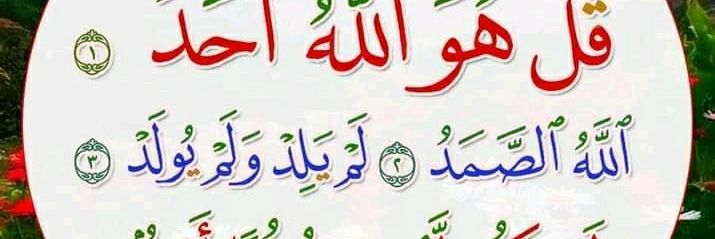 قُلْ هُوَ اللَّهُ أَحَدٌ ١
ٱللَّهُ ٱلصَّمَدُ ٢ لَمْ يَلِدْ وَلَمْ يُولَدْ ٣